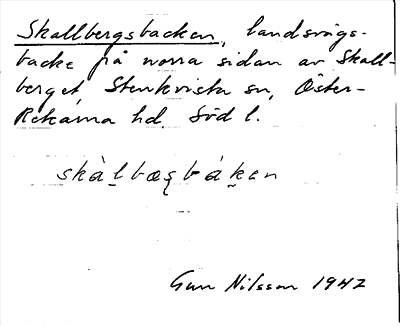 Skallbergsbacken, landsvägs-
backe på norra sidan av Skall-
berget Stenkvista sn, Öster-
Rekarna hd Södl.
skàl̠bæʂbák̠en
Gun Nilsson 1942